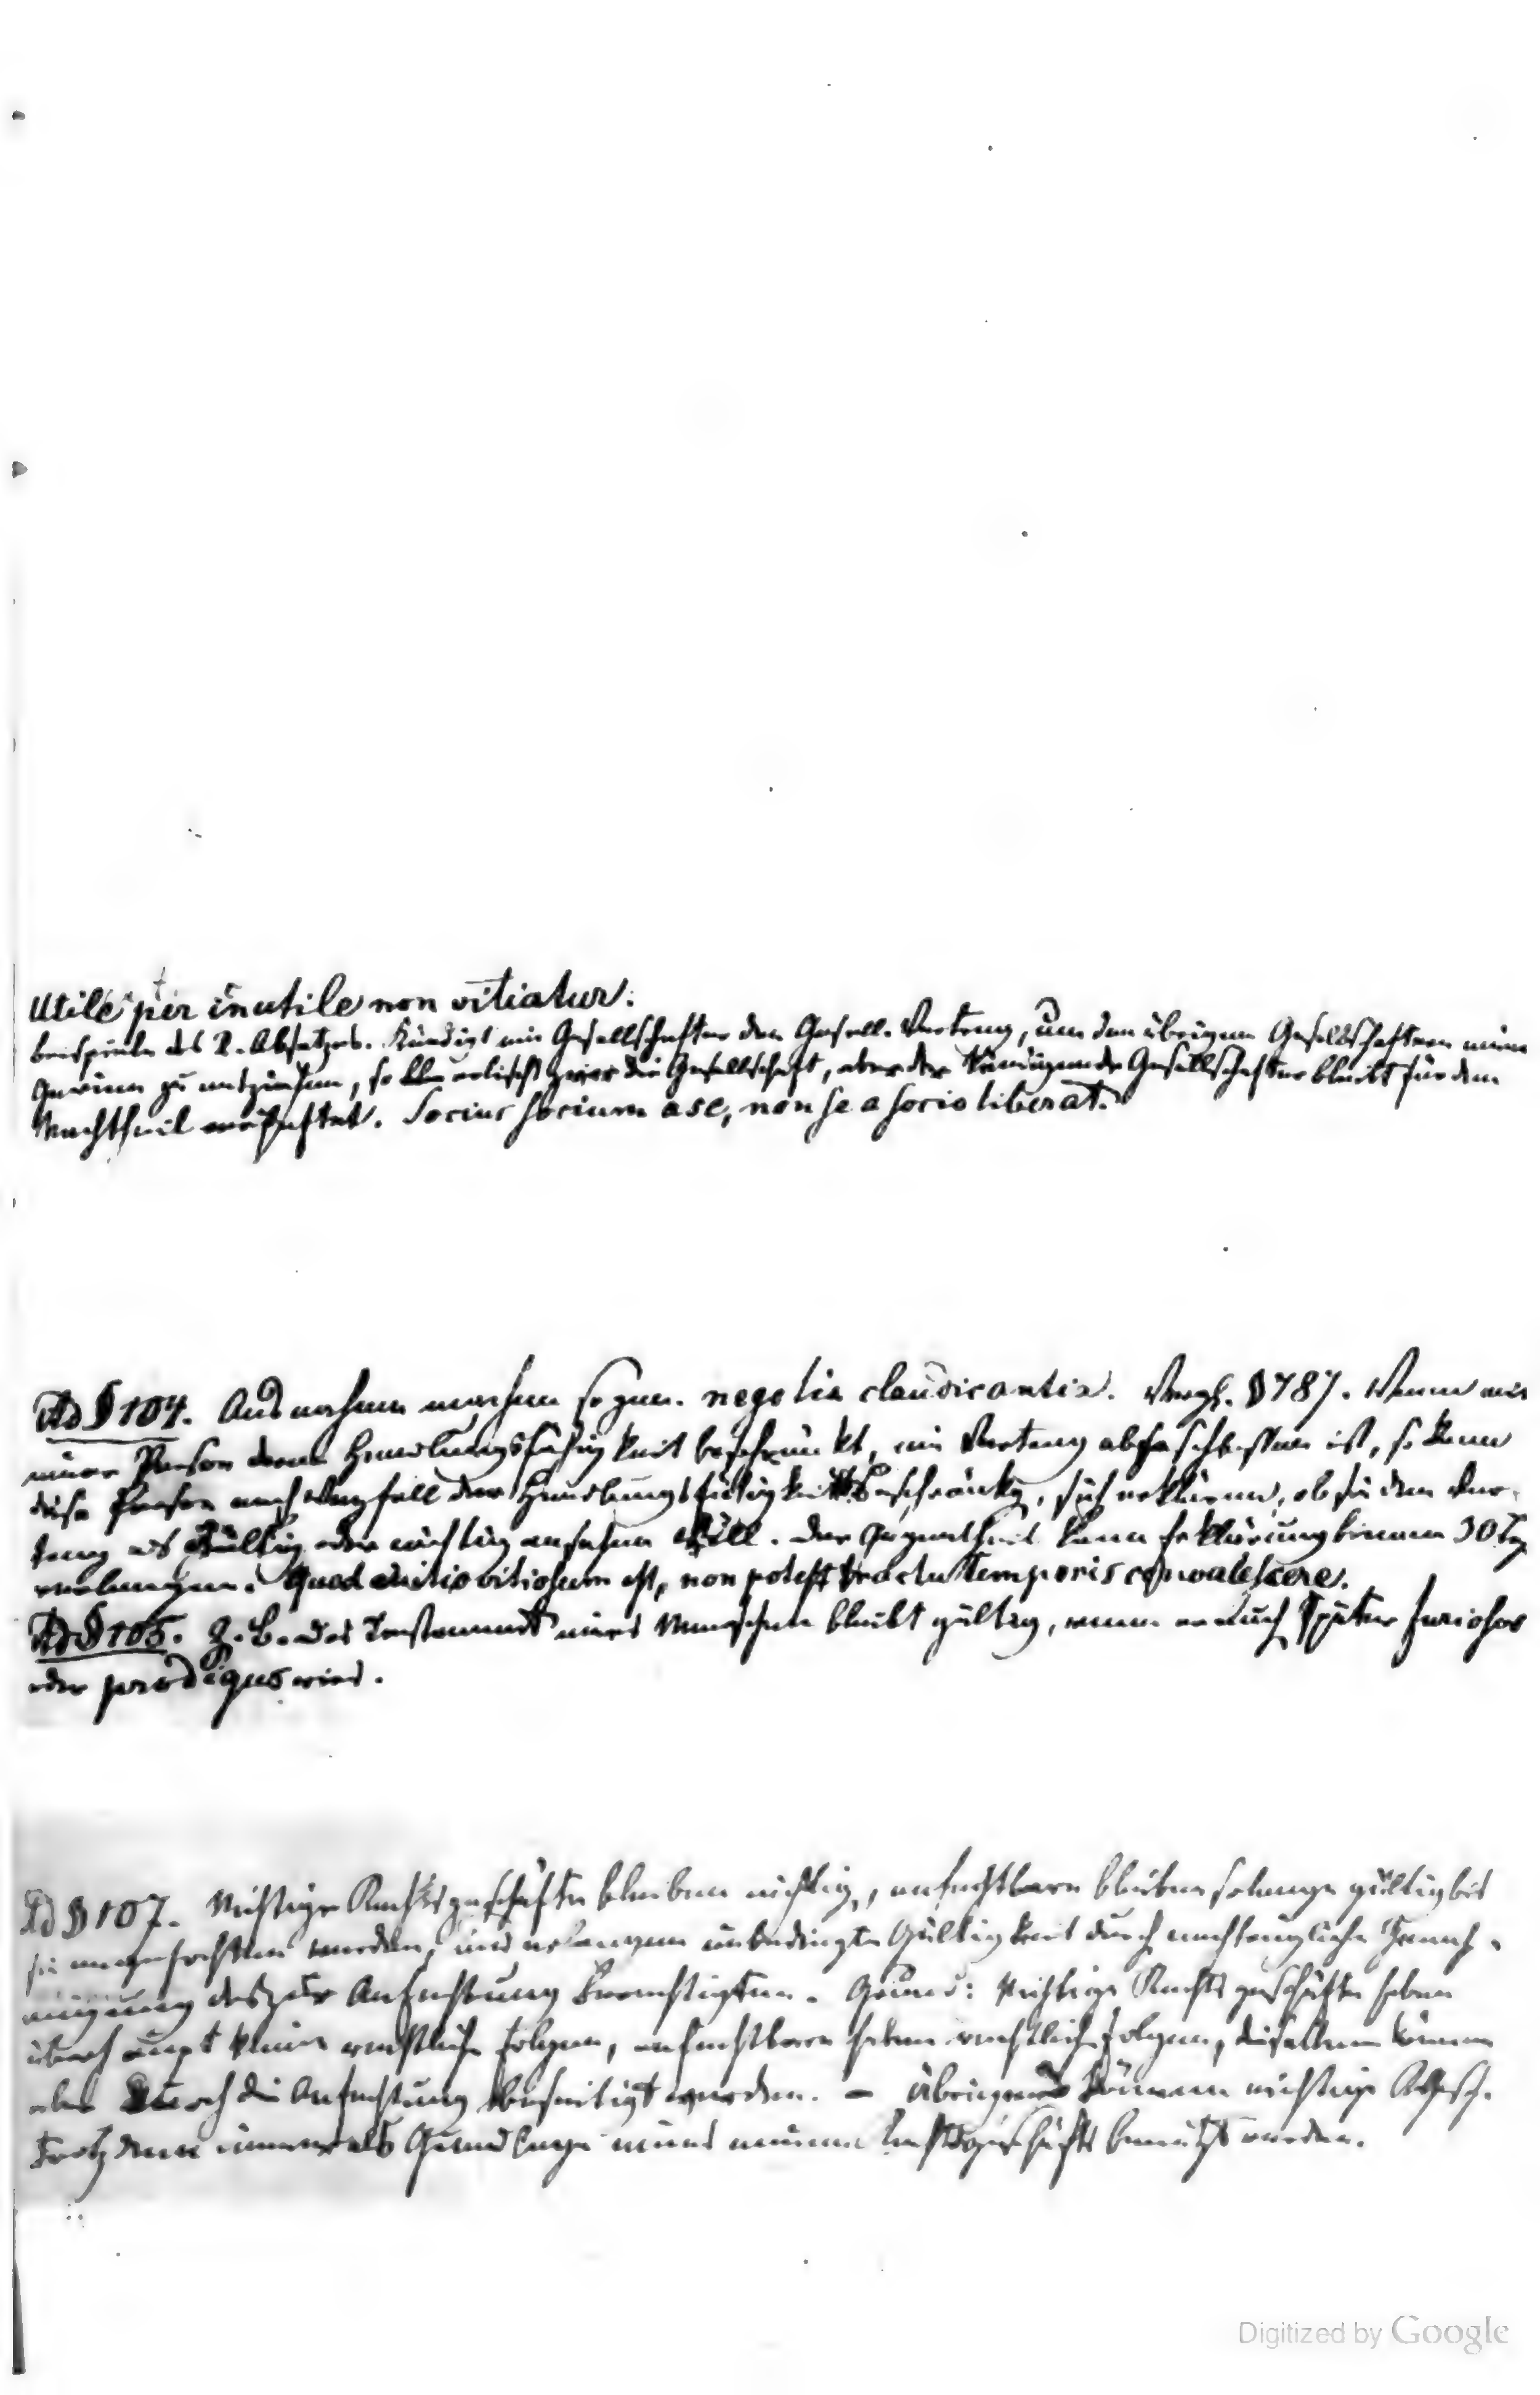 Utile per inutile non vitiatur.
Beispiele des 2. Absatzes. Kündigt ein Gesellschafter den Gesell. Vertrag, um den übrigen Gesellschaftern einen
Gewinn zu entziehen, so erlischt zwar die Gesellschaft, aber der kündigende Gesellschafter bleibt für den
Nachtheil verhaftet. Socius socium a se, non se a socio liberat.
Ad § 104. Ausnahmen machen sogen. negotia claudicantia. Vergl. § 787. Wenn mit
einer Person deren Handlungsfähigkeit beschränkt, ein Vertrag abgeschlossen ist, so kann
diese Person nach Wegfall der Handlungsfähigkeitsbeschränkg, sich erklären, ob sie den Ver-
trag als gültig oder nichtig ansehen will. Der Gegentheil kann Erklärung binnen 30 Tg
verlangen. Quod initio vitiosum est, non potest tractu temporis convalescere.
Ad § 105. Z. B. das Testament eines Menschen bleibt gültig, wenn er auch später furiosus
oder prodigus wird.
Ad § 107. Nichtige Rechtsgeschäfte bleiben nichtig, anfechtbare bleiben solange gültig bis
sie angefochten werden, und erlangen unbedingte Gültigkeit durch nachträgliche Geneh-
migung des zur Anfechtung Berechtigten. Grund: Nichtige Rechtsgeschäfte haben
überhaupt keine rechtliche Folgen, anfechtbare haben rechtliche Folgen, dieselben können
aber durch die Anfechtung beseitigt werden. – Übrigens können nichtige
trotzdem immer als Grundlage eines neuen Rechtsgeschäfts benützt werden.
Digitized by Google